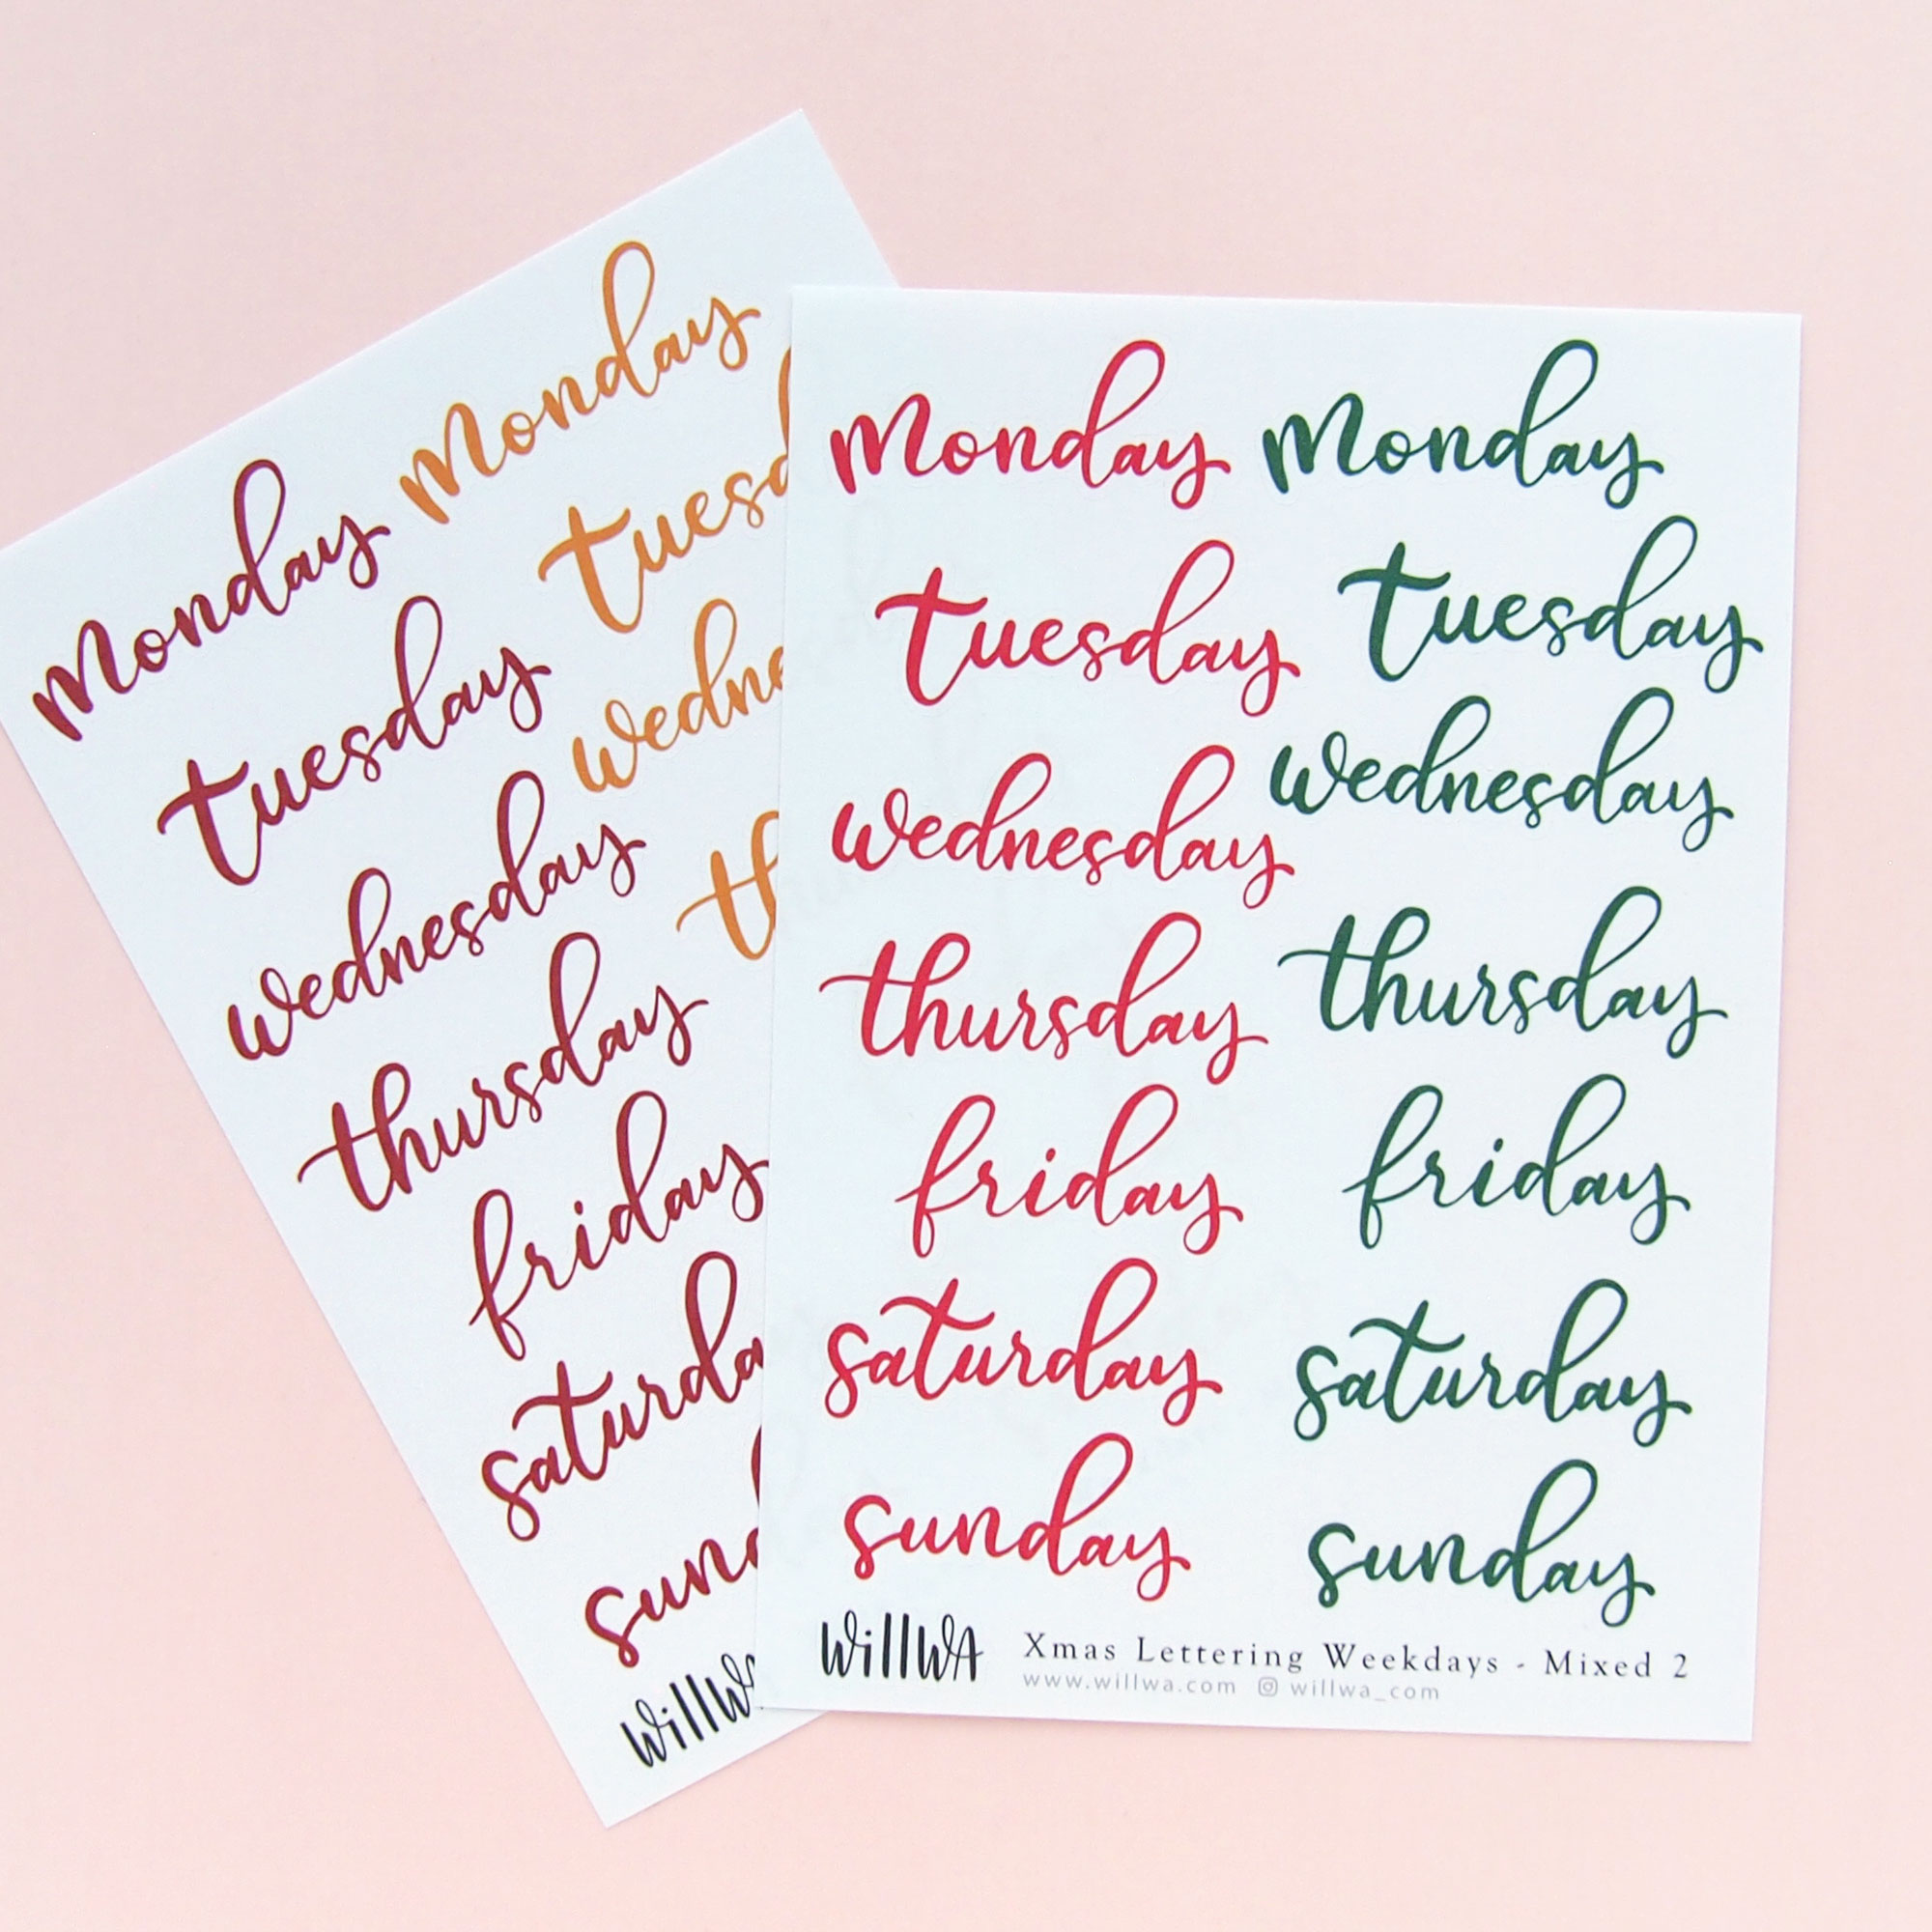 Monday Monday
tuesday tuesd
wednesday wedne
thursday th
friday
saturda
sun
WillW
Monday Monday
tuesday tuesday
wednesday wednesday
thursday thursday
friday friday
saturday saturday
sunday sunday
WillWA Xmas Lettering Weekdays - Mixed 2
www.willwa.com willwa_com